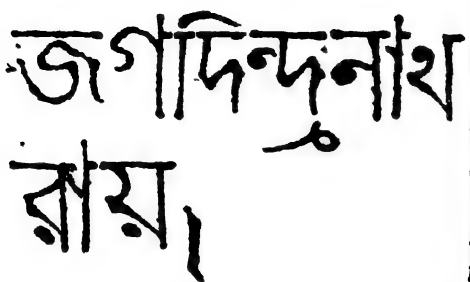 জগদিন্দ্রনাথ
রায়।